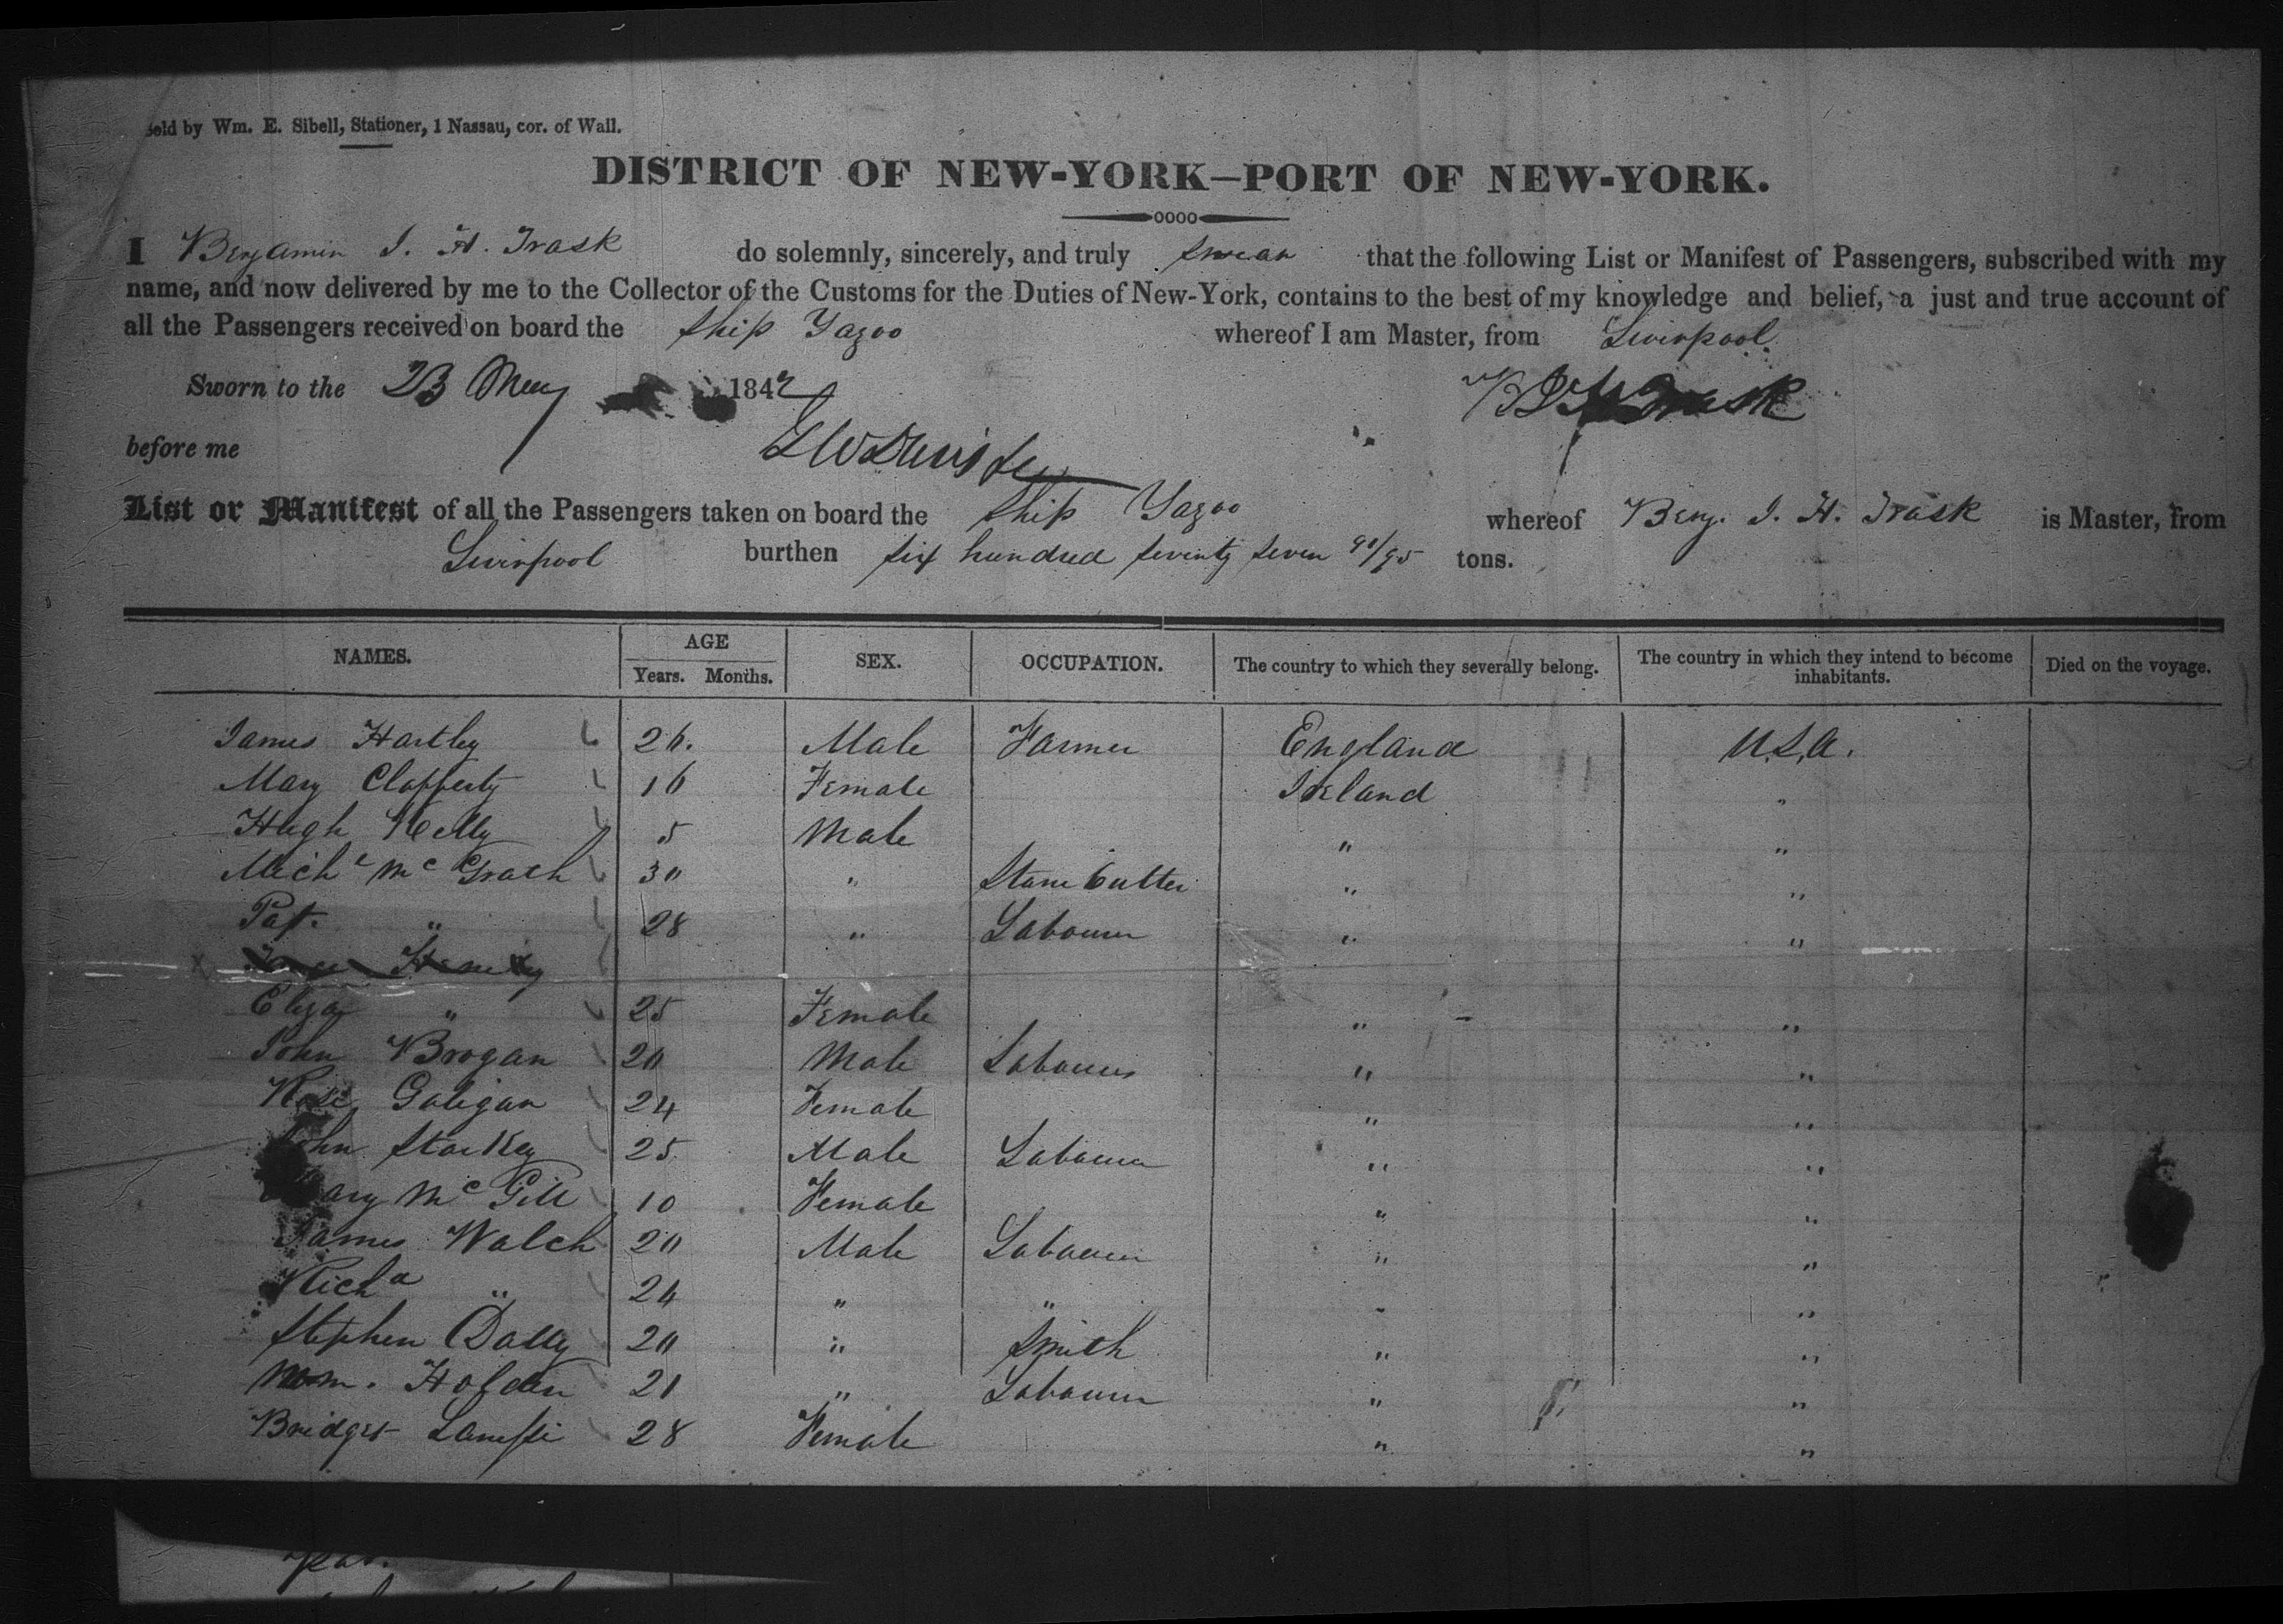 Sold by Wm. E. Sibell, Stationer, 1 Nassau, cor. of Wall.
DISTRICT OF NEW-YORK—PORT OF NEW-YORK.
I Benjamin I. H. Trask do solemnly, sincerely, and truly swear that the following List or Manifest of Passengers, subscribed with my
name, and now delivered by me to the Collector of the Customs for the Duties of New-York, contains to the best of my knowledge and belief, a just and true account of
all the Passengers received on board the Ship Yazoo whereof I am Master, from Liverpool.
Sworn to the 23 May 1842 Trask
before me
List or Manifest of all the Passengers taken on board the Ship Yazoo whereof Benj. I. H. Trask is Master, from
Liverpool burthen six hundred seventy seven 90/95 tons.
NAMES. AGE SEX. OCCUPATION. The country to which they severally belong. The country in which they intend to become inhabitants. Died on the voyage.
Years. Months.
James Hartley 26. Male Farmer England U.S.A.
Mary Clafferty 16 Female Ireland "
Hugh Kelly 5 Male " "
Michl McGrath 30 " Stone Cutter " "
Pat. " 28 " Labourer " "
Eliza " 25 Female " "
John Brogan 20 Male Labourer " "
Rose Galigan 24 Female " "
John Starkey 25 Male Labourer " "
Mary McGill 10 Female " "
James Walch 20 Male Labourer " "
Richd " 24 " " " "
Stephen Dally 20 " Smith " "
Wm. Holden 21 " Labourer " "
Bridget 28 Female " "